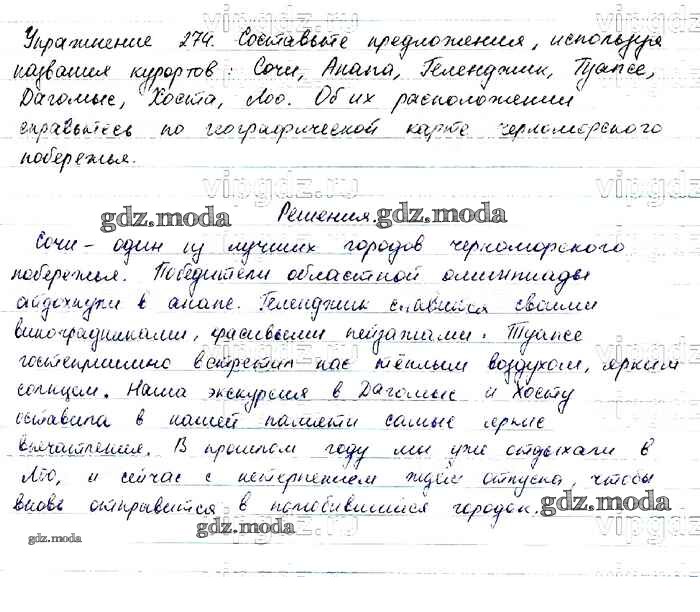 Упражнение 274. Составьте предложения, используя
названия курортов: Сочи, Анапа, Геленджик, Туапсе,
Дагомыс, Хоста, Лоо. Об их расположении
справьтесь по географической карте черноморского
побережья.
vipgdz.ru
gdz.moda Решения. gdz.moda
Сочи - один из лучших городов черноморского
побережья. Победители областной олимпиады
в анапе. Геленджик славится своими
виноградниками, красивыми пейзажами. Туапсе
гостеприимно встретил нас тёплым воздухом, ярким
солнцем. Наша экскурсия в Дагомыс и Хосту
оставила в нашей памяти самые яркие
впечатления. В прошлом году мы уже отдыхали в
Лоо, и сейчас с нетерпением ждём отпуска, чтобы
вновь отправится в полюбившийся городок. gdz.moda
gdz.moda gdz.moda